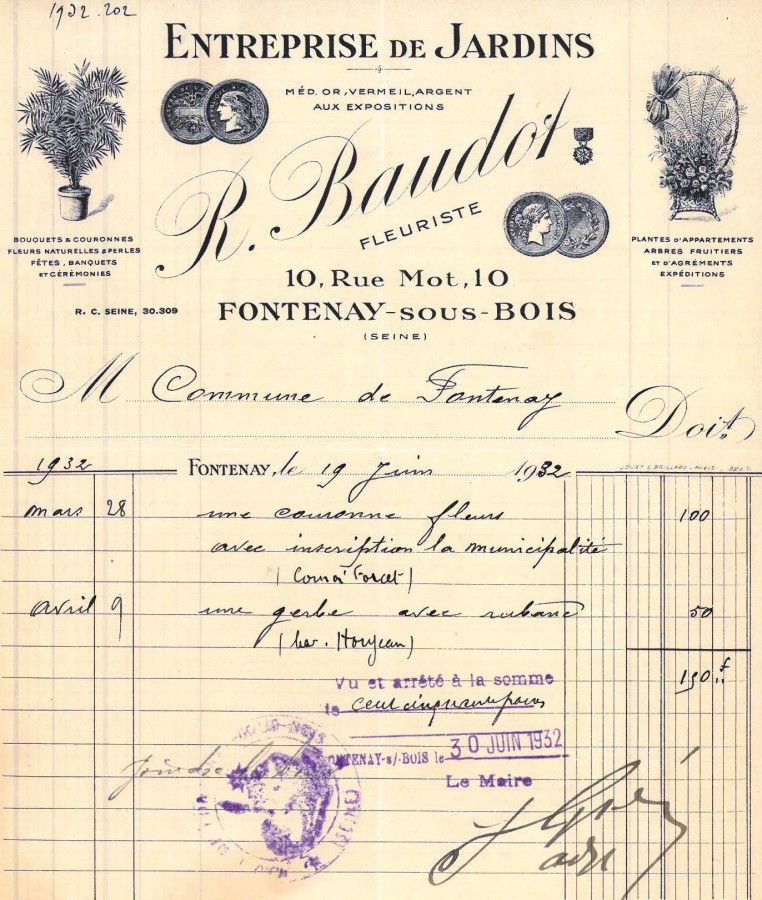 1932.202
ENTREPRISE DE JARDINS
MÉD. OR, VERMEIL, ARGENT
AUX EXPOSITIONS
R. Baudot
FLEURISTE
BOUQUETS & COURONNES
FLEURS NATURELLES & PERLES
FÊTES, BANQUETS
ET CÉRÉMONIES
PLANTES D'APPARTEMENTS
ARBRES FRUITIERS
ET D'AGRÉMENTS
EXPÉDITIONS
10, Rue Mot, 10
R. C. SEINE, 30.309
FONTENAY-SOUS-BOIS
(SEINE)
M Commune de Fontenay
Doit
1932 FONTENAY, le 19 Juin 1932
mars 28 une couronne fleurs 100
avec inscription la municipalité
avril 9 une gerbe avec rubans 50
150 f
Vu et arrêté à la somme
de cent cinquante francs
FONTENAY-s/-BOIS le 30 JUIN 1932
Le Maire
Joindre